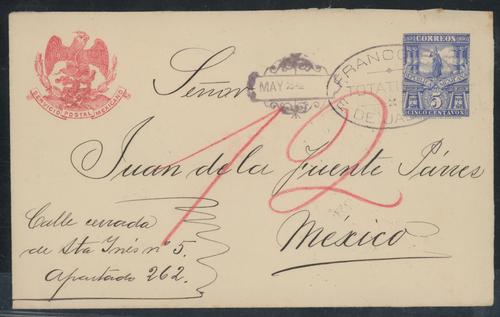 SERVICIO POSTAL MEXICANO
CORREOS
5
CINCO CENTAVOS
FRANCO
MAY
Señor
12
Juan de la Fuente Párres
México
Calle cerrada
de Sta Inés nº 5.
Apartado 262.